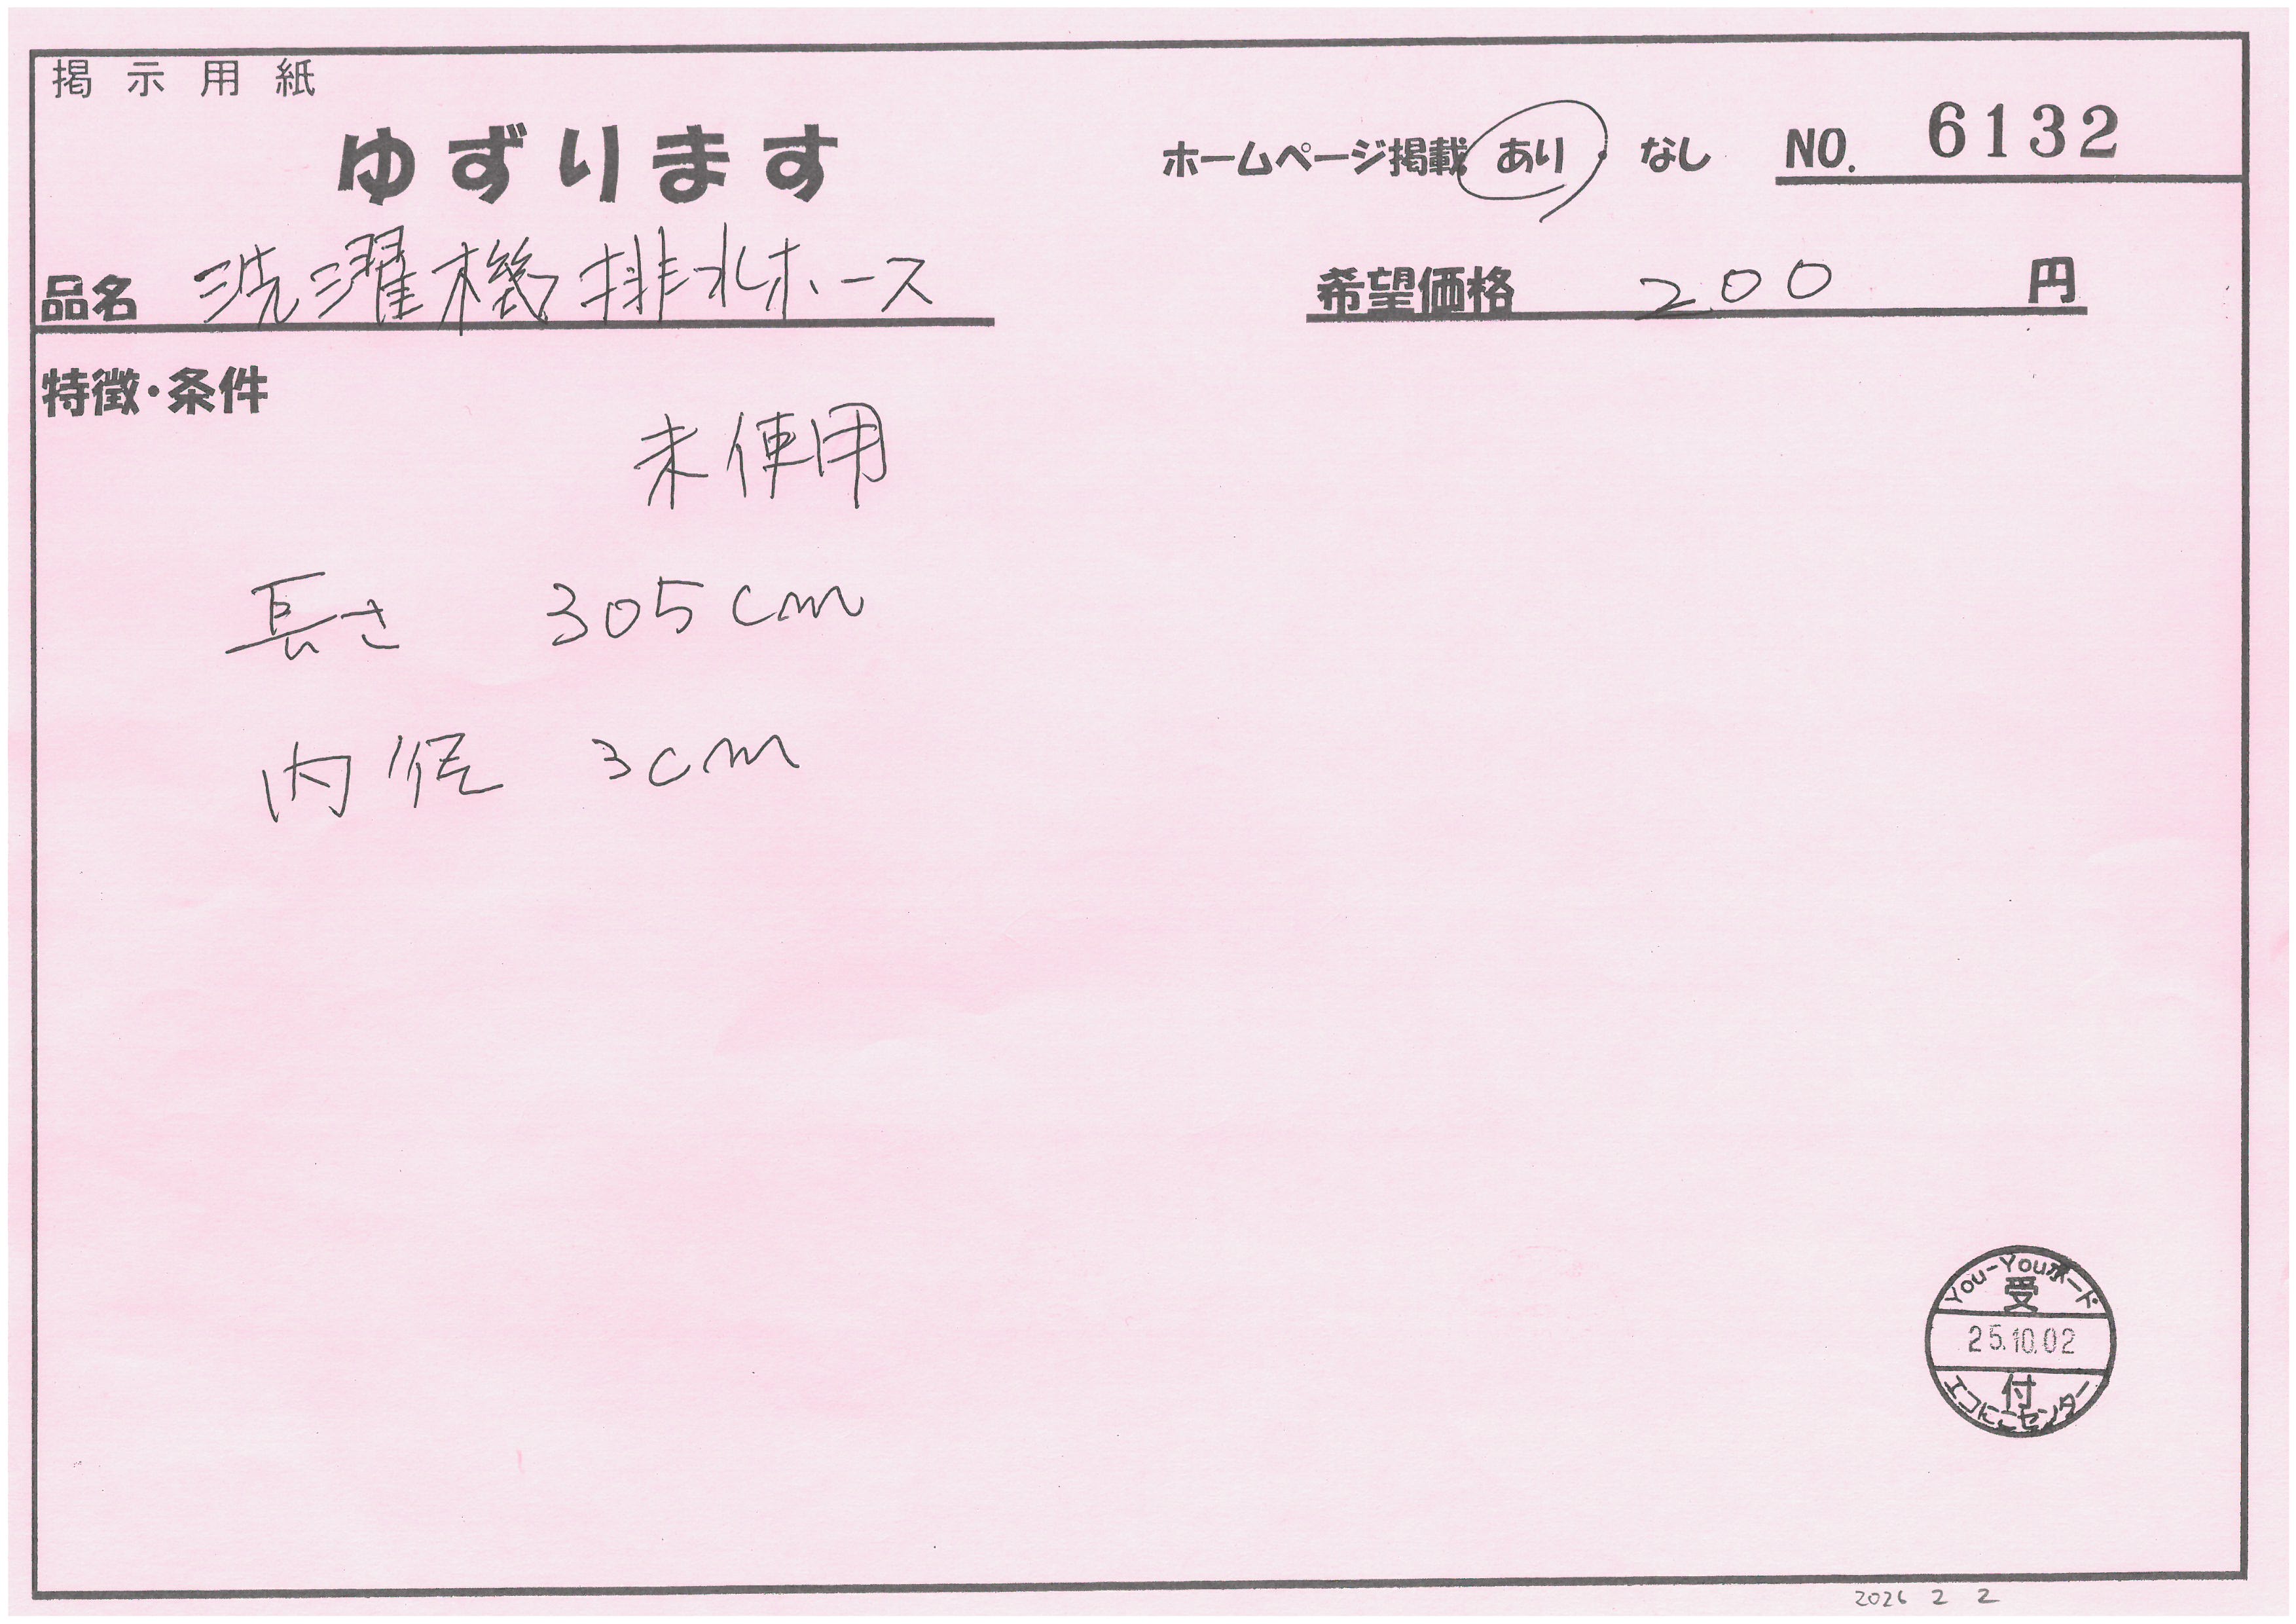 掲示用紙
ゆずります
ホームページ掲載 あり・なし NO. 6132
品名 洗濯機排水ホース
希望価格 200 円
特徴・条件
未使用
長さ 305cm
内径 3cm
You-Youボード
受
25.10.02
付
エコにこセンター
2026 2 2